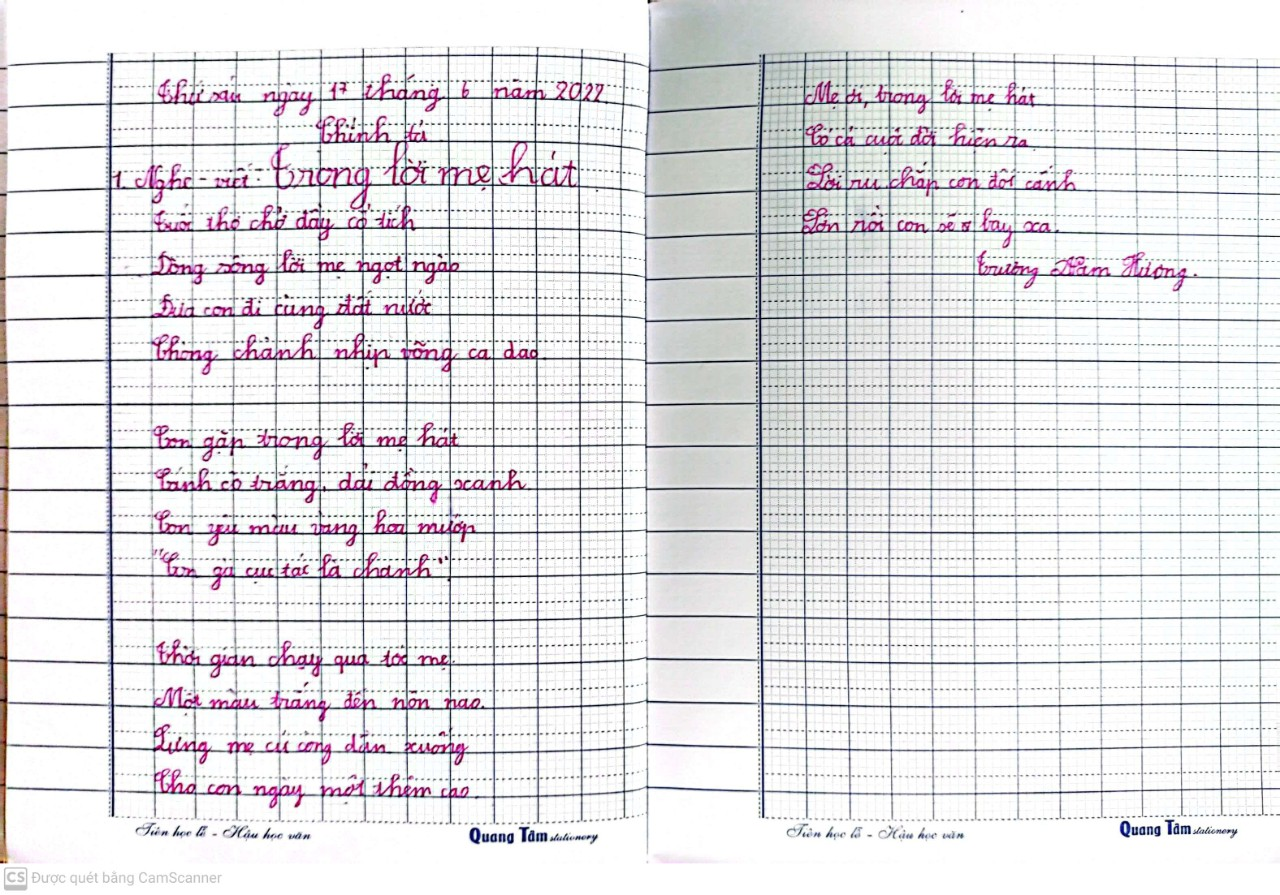 Thứ sáu ngày 17 tháng 6 năm 2022
Chính tả
1. Nghe - viết: Trong lời mẹ hát
Tuổi thơ chở đầy cổ tích
Dòng sông lời mẹ ngọt ngào
Đưa con đi cùng đất nước
Chòng chành nhịp võng ca dao.
Con gặp trong lời mẹ hát
Cánh cò trắng, dải đồng xanh
Con yêu màu vàng hoa mướp
"Con gà cục tác lá chanh".
Thời gian chạy qua tóc mẹ
Một màu trắng đến nôn nao.
Lưng mẹ cứ còng dần xuống
Cho con ngày một thêm cao.
Tiên học lễ - Hậu học văn
Quang Tâm stationery
Mẹ ơi, trong lời mẹ hát
Có cả cuộc đời hiện ra
Lời ru chắp con đôi cánh
Lớn rồi con sẽ bay xa.
Trương Nam Hương.
Tiên học lễ - Hậu học văn
Quang Tâm stationery
CS Được quét bằng CamScanner